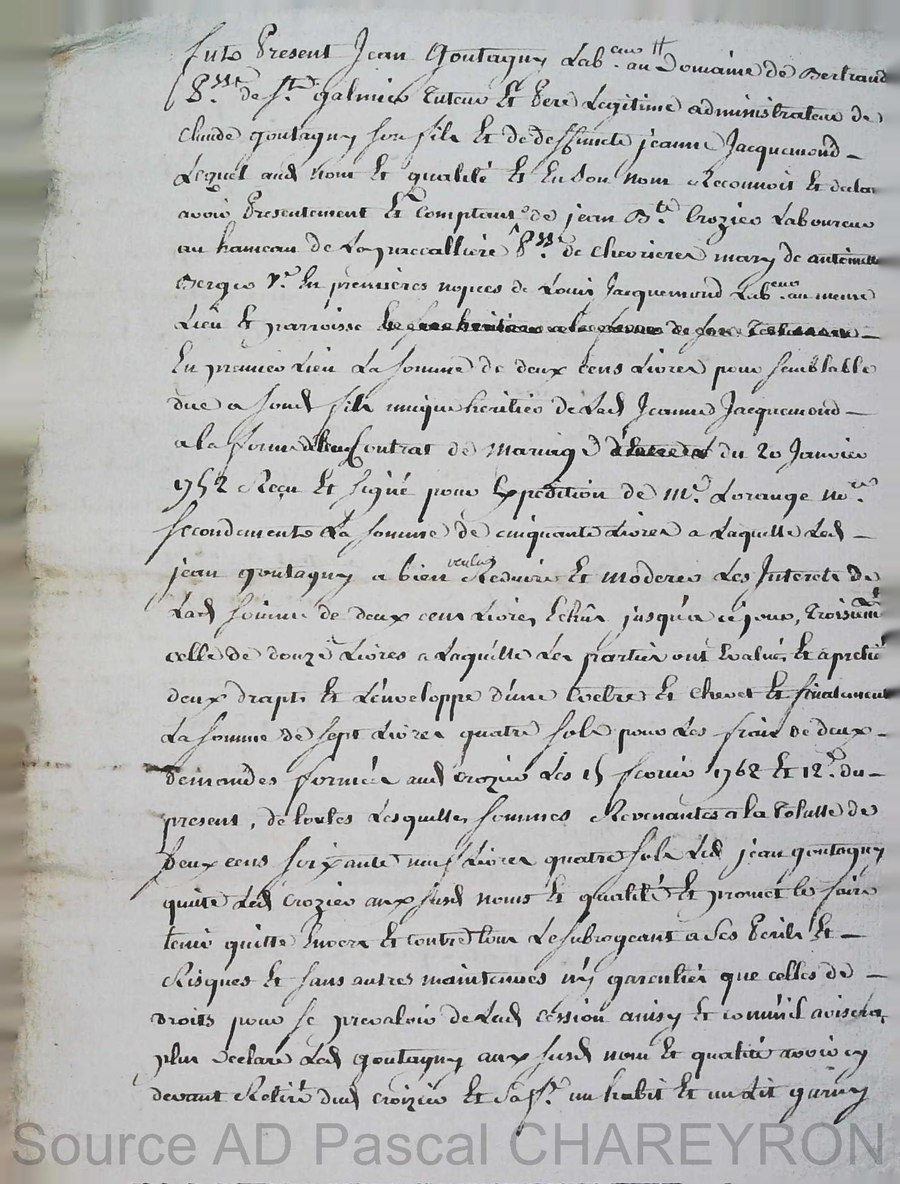 Fut Present Jean Goutagny Lab.eur au Domaine de Bertrand
P.sse de S.t galmier tuteur Et Pere Legitime administrateur de
Claude goutagny son fils Et de deffuncte jeanne Jacquemond
Lequel aud nom Et qualité Et En Son Nom Reconnoit Et declar
avoir Presentement Et Comptant de jean B.te Crozier Laboureur
au hameau de P.sse de Chevrieres mary de antoinette
Berger v.e En premieres nopces de Louis Jacquemond Lab.eur au meme
Lieu Et parroisse
En premier Lieu La somme de deux Cens Livres pour semblable
due a Soud fils unique heritier de Lad Jeanne Jacquemond
a la forme Contrat de Mariage du 20 Janvier
1752 Reçu Et signé pour Expedition de M.e Lorange N.re
Secondement La somme de cinquante Livres a Laquelle Led
jean goutagny a bien voulu Reduire Et moderer Les Interets de
Lad somme de deux cens Livres Echus jusqu'a ce jour, troisieme
celle de douze Livres a Laquelle Les parties ont Evalué Et aprecié
deux draps Et L'enveloppe d'une Coetre Et Chevet Et finalement
La somme de sept Livres quatre sols pour Les frais de deux
demandes formées aud Crozier Les 15 fevrier 1762 Et 12.e du
present, de toutes Lesquelles sommes Revenantes a la totalle de
Deux cens soixante neuf Livres quatre sols Led jean goutagny
quitte Led Crozier aux susd noms Et qualité Et promet le faire
tenir quitte Envers Et contre tous Le subrogeant a Ses Perils Et
Risques Et sans autres maintenues ny garenties que celles de
droits pour se prevaloir de Lad cession ainsy Et comm'il avisera,
plus declare Led goutagny aux susd nom Et qualité avoir cy
devant Retiré dud Croizier Et Sa f.e un habit Et un Lit garny
Source AD Pascal CHAREYRON